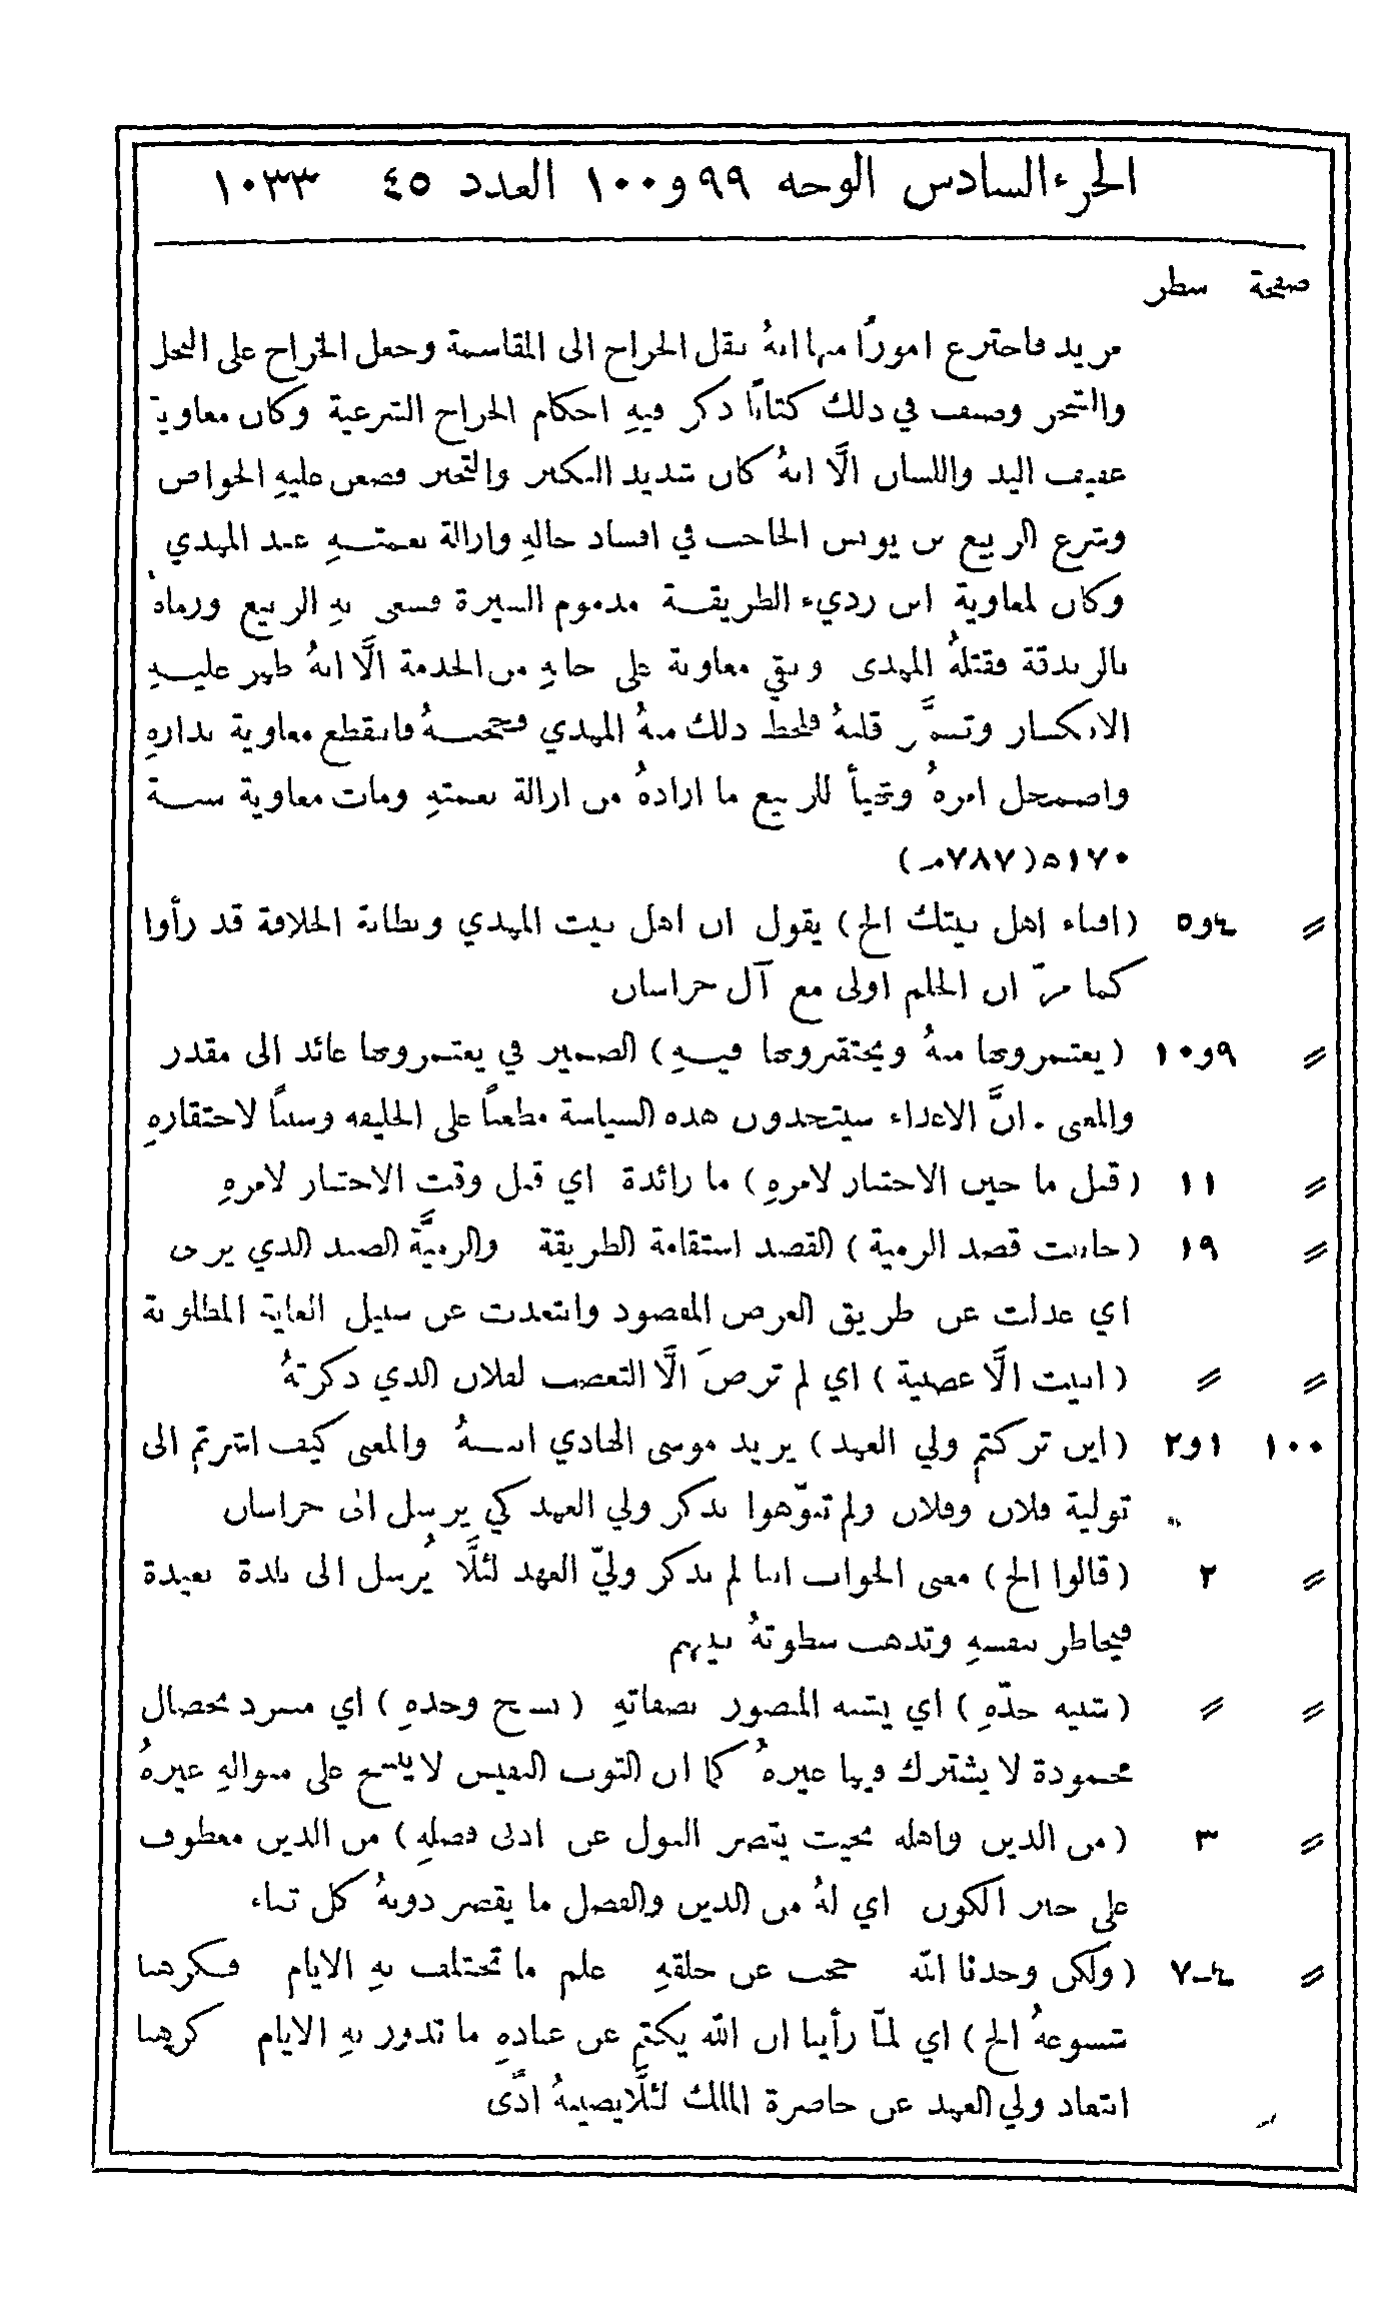 الجزء السادس الوجه ٩٩ و١٠٠ العدد ٤٥ ١٠٣٣
صفحة سطر
مزيد فاخترع امورًا منها انهُ نقل الخراج الى المقاسمة وجعل الخراج على النخل
والشجر وصنف في ذلك كتابًا ذكر فيهِ احكام الخراج الشرعية وكان معاوية
عفيف اليد واللسان الَّا انهُ كان شديد التكبر والتجبر فضغن عليهِ الخواص
وشرع الربيع بن يونس الحاجب في افساد حالهِ وازالة نعمتـهِ عند المهدي
وكان لمعاوية ابن رديء الطريقـة مذموم السيرة فسعى بهِ الربيع ورماهُ
بالزندقة فقتلهُ المهدي وبقي معاوية على حالهِ من الخدمة الَّا انهُ ظهر عليـهِ
الانكسار وتنمَّر قلبهُ فلحظ ذلك منهُ المهدي فحجبـهُ فانقطع معاوية بدارهِ
واضمحل امرهُ وتهيأ للربيع ما ارادهُ من ازالة نعمتهِ ومات معاوية سنـة
١٧٠ه (٧٨٧م)
〃 ٤و٥ (افناء اهل بيتك الخ) يقول ان اهل بيت المهدي وبطانة الخلافة قد رأوا
كما مرّ ان الحلم اولى مع آل خراسان
〃 ٩و١٠ (يغتمزونها منهُ ويحتقرونها فيـهِ) الضمير في يغتمزونها عائد الى مقدر
والمعنى . انَّ الاعداء سيتخذون هذه السياسة مطعنًا على الخليفه وسببًا لاحتقارهِ
〃 ١١ (قبل ما حين الاختبار لامرهِ) ما زائدة اي قبل وقت الاختبار لامرهِ
〃 ١٩ (جانبت قصد الرمية) القصد استقامة الطريقة والرميَّة الصيد الذي يرمى
اي عدلت عن طريق الغرض المقصود وابتعدت عن سبيل الغاية المطلوبة
〃 〃 (ابيت الَّا عصبية) اي لم ترضَ الَّا التعصب لفلان الذي ذكرتهُ
١٠٠ ١و٢ (اين تركتم ولي العهد) يريد موسى الهادي ابنـهُ والمعنى كيف اشرتم الى
تولية فلان وفلان ولم تنوّهوا بذكر ولي العهد كي يرسل الى خراسان
〃 ٢ (قالوا الخ) معنى الجواب اننا لم نذكر وليّ العهد لئلَّا يُرسل الى بلدة بعيدة
فيخاطر بنفسهِ وتذهب سطوتهُ بينهم
〃 〃 (شبيه جدّهِ) اي يشبه المنصور بصفاتهِ (نسيج وحدهِ) اي منفرد بخصال
محمودة لا يشترك فيها غيرهُ كما ان الثوب النفيس لا ينسج على منوالهِ غيرهُ
〃 ٣ (من الدين واهله بحيث يقصر القول عن ادنى فضلهِ) من الدين معطوف
على خبر الكون اي لهُ من الدين والفضل ما يقصر دونهُ كل ثناء
〃 ٤-٧ (ولكن وجدنا الله حجب عن خلقهِ علم ما تختلف بهِ الايام فكرهنا
شسوعهُ الخ) اي لمّا رأينا ان الله يكتم عن عبادهِ ما تدور بهِ الايام كرهنا
ابتعاد ولي العهد عن حاضرة الملك لئلَّا يصيبهُ اذًى